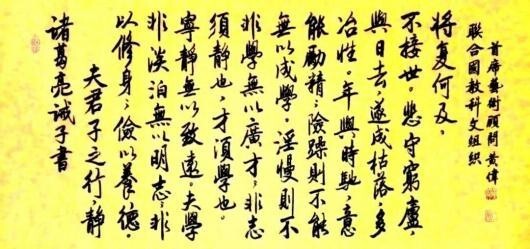 諸葛亮誡子書
夫君子之行，静
以修身；儉以養德。
非淡泊無以明志，非
寧静無以致遠。夫學
須静也，才須學也。
非學無以廣才，非志
無以成學。淫慢則不
能勵精；險躁則不能
冶性。年與時馳，意
與日去，遂成枯落，多
不接世。悲守窮廬，
将复何及。
聯合國教科文組織
首席藝術顧問黄偉